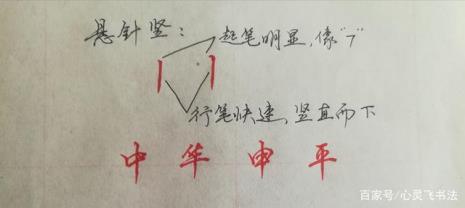 悬针竖：
起笔明显，像"7"
行笔快速，竖直而下
中华申平
百家号/心灵飞书法